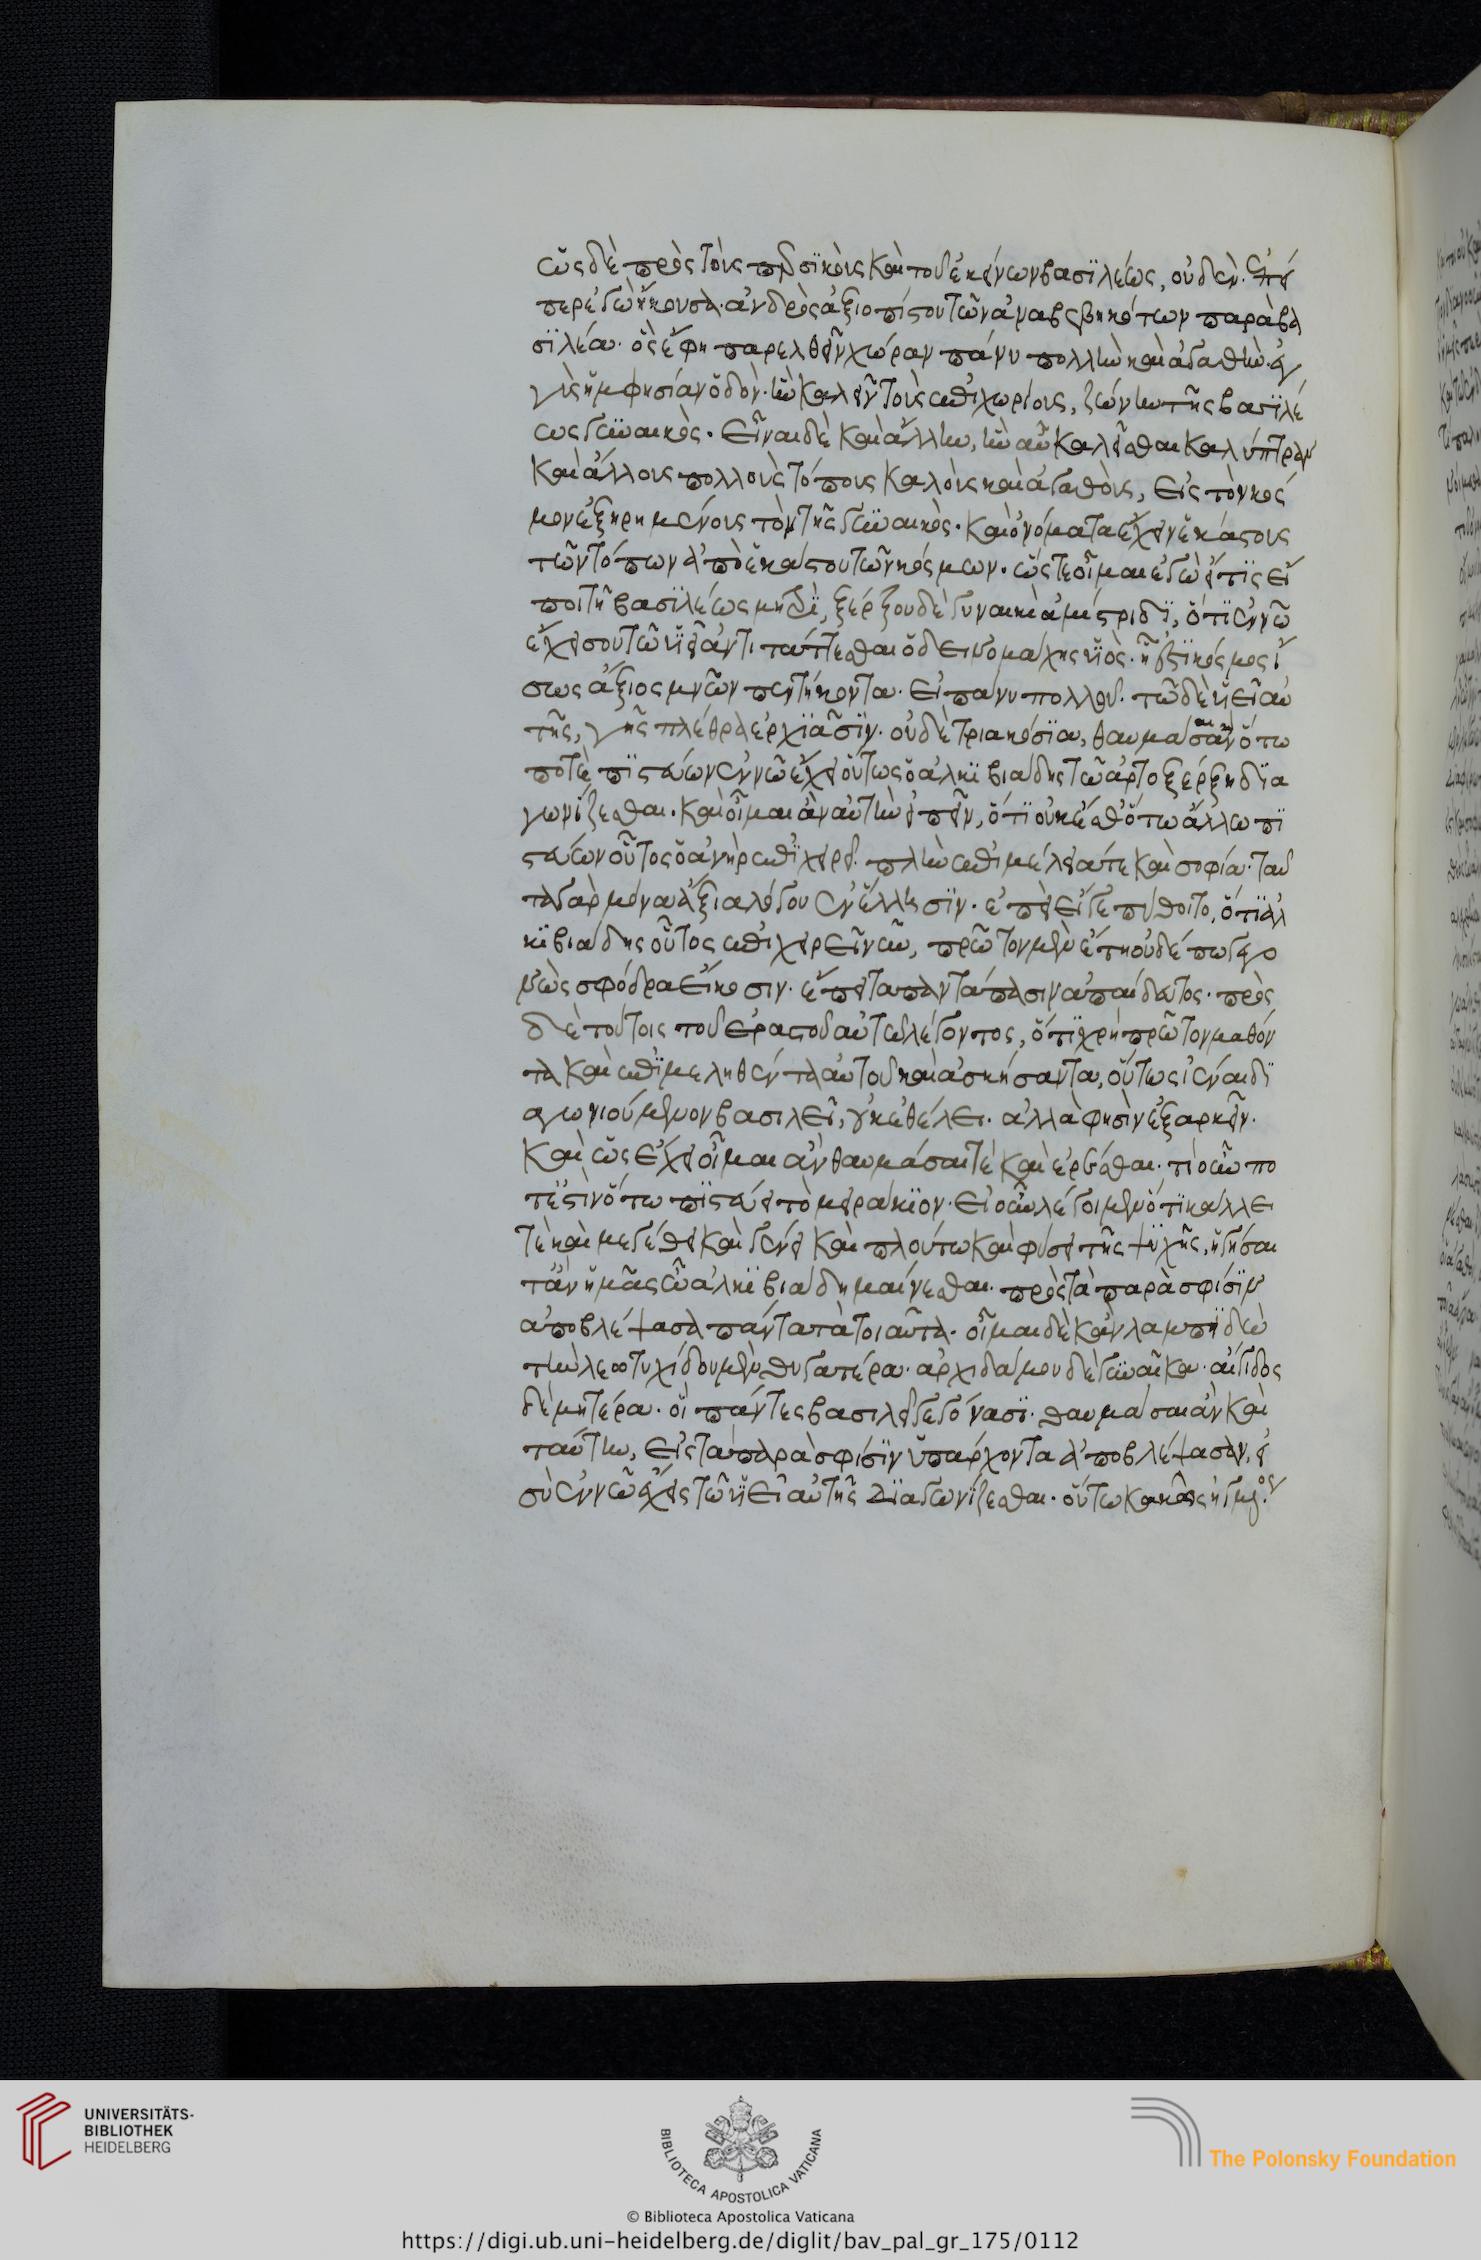 ὡς δὲ πρὸς τοὺς περσϊκοὺς καὶ τοῦ ἐκείνων βασϊλέως, οὐδὲν. ἐπεί
περ ἐγὼ ἤκουσα. ἀνδρὸς ἀξιοπίστου τῶν ἀναβεβηκότων παρὰ βα
σϊλέα. ὃς ἔφη παρελθεῖν χώραν πάνυ πολλὴν καὶ ἀγαθὴν. ἐγ
γὺς ἡμερησίαν ὁδὸν. ἣν καλεῖν τοὺς ἐπιχωρίους, ζώνην τῆς βασϊλέ
ως γυναικὸς. εἶναι δὲ καὶ ἄλλην, ἣν αὖ καλεῖσθαι καλύπτραν
καὶ ἄλλους πολλοὺς τόπους καλοὺς καὶ ἀγαθοὺς, εἰς τὸν κόσ
μον ἐξηρημένους τὸν τῆς γυναικὸς. καὶ ὀνόματα ἔχειν ἑκάστους
τῶν τόπων ἀπὸ ἑκάστου τῶν κόσμων. ὥστε οἶμαι ἐγὼ εἴ τϊς εἴ
ποι τῆ βασϊλέως μητρὶ, ξέρξου δὲ γυναικὶ ἀμίστριδϊ, ὅτϊ ἐν νῶ
ἔχει σου τῶ υἱεῖ ἀντιτάττεσθαι ὁ δεινομάχης υἱὸς. ἧ ἐστϊ κόσμος ἴ
σως ἄξιος μνῶν πεντήκοντα. εἰ πάνυ πολλοῦ. τῶ δὲ υἱεῖ αὐ
τῆς, γῆς πλέθρα ἐρχϊᾶσϊν. οὐδὲ τριακόσϊα, θαυμάσαι ἂν ὅτω
ποτὲ πϊστεύων ἐν νῶ ἔχει οὗτος ὁ ἀλκϊβιάδης τῶ ἀρτοξέρξη δϊα
γωνίζεσθαι. καὶ οἶμαι ἂν αὐτὴν εἰπεῖν, ὅτϊ οὐκ ἔσθ' ὅτω ἄλλω πϊ
στεύων οὗτος ὁ ἀνὴρ ἐπϊχειρεῖ. πλὴν ἐπιμελεία τε καὶ σοφία. ταῦ
τα γὰρ μόνα ἄξια λόγου ἐν ἕλλησϊν. ἐπεὶ εἴ γε πύθοιτο, ὅτϊ ἀλ
κϊβιάδης οὗτος ἐπιχειρεῖ νῦν, πρῶτον μὲν ἔτη οὐδέπω γεγο
νὼς σφόδρα εἴκοσιν. ἔπειτα παντάπασιν ἀπαίδευτος. πρὸς
δὲ τούτοις τοῦ ἐραστοῦ αὐτῶ λέγοντος, ὅτϊ χρὴ πρῶτον μαθόν
τα καὶ ἐπϊμεληθέντα αὑτοῦ καὶ ἀσκήσαντα, οὕτως ἰέναι δϊ
αγωνιούμενον βασιλεῖ, οὐκ ἐθέλει. ἀλλὰ φησὶν ἐξαρκεῖν.
καὶ ὡς ἔχει οἶμαι ἂν θαυμάσαι τὲ καὶ ἐρέσθαι. τί οὖν πο
τέ ἐστὶν ὅτω πϊστεύει τὸ μειράκϊον. εἰ οὖν λέγοιμεν ὅτϊ κάλλει
τὲ καὶ μεγέθει καὶ γένει καὶ πλούτω καὶ φύσει τῆς ψυχῆς, ἡγήσαι
τ' ἂν ἡμᾶς ὦ ἀλκϊβιάδη μαίνεσθαι. πρὸς τὰ παρὰ σφίσϊν
ἀποβλέψασα πάντα τὰ τοιαῦτα. οἶμαι δὲ κἂν λαμπϊδὼ
τὴν λεωτυχίδου μὲν θυγατέρα. ἀρχιδάμου δὲ γυναῖκα. αἴγιδος
δὲ μητέρα. οἳ πάντες βασιλεῖς γεγόνασϊ. θαυμάσαι ἂν καὶ
ταύτην, εἰς τὰ παρὰ σφίσϊν ὑπάρχοντα ἀποβλέψασαν, εἰ
σὺ ἐν νῶ ἔχεις τῶ υἱεῖ αὐτῆς διαγωνίζεσθαι. οὕτω κακῶς ἠγμένος
UNIVERSITÄTS-
BIBLIOTHEK
HEIDELBERG
BIBLIOTECA APOSTOLICA VATICANA
The Polonsky Foundation
© Biblioteca Apostolica Vaticana
https://digi.ub.uni-heidelberg.de/diglit/bav_pal_gr_175/0112